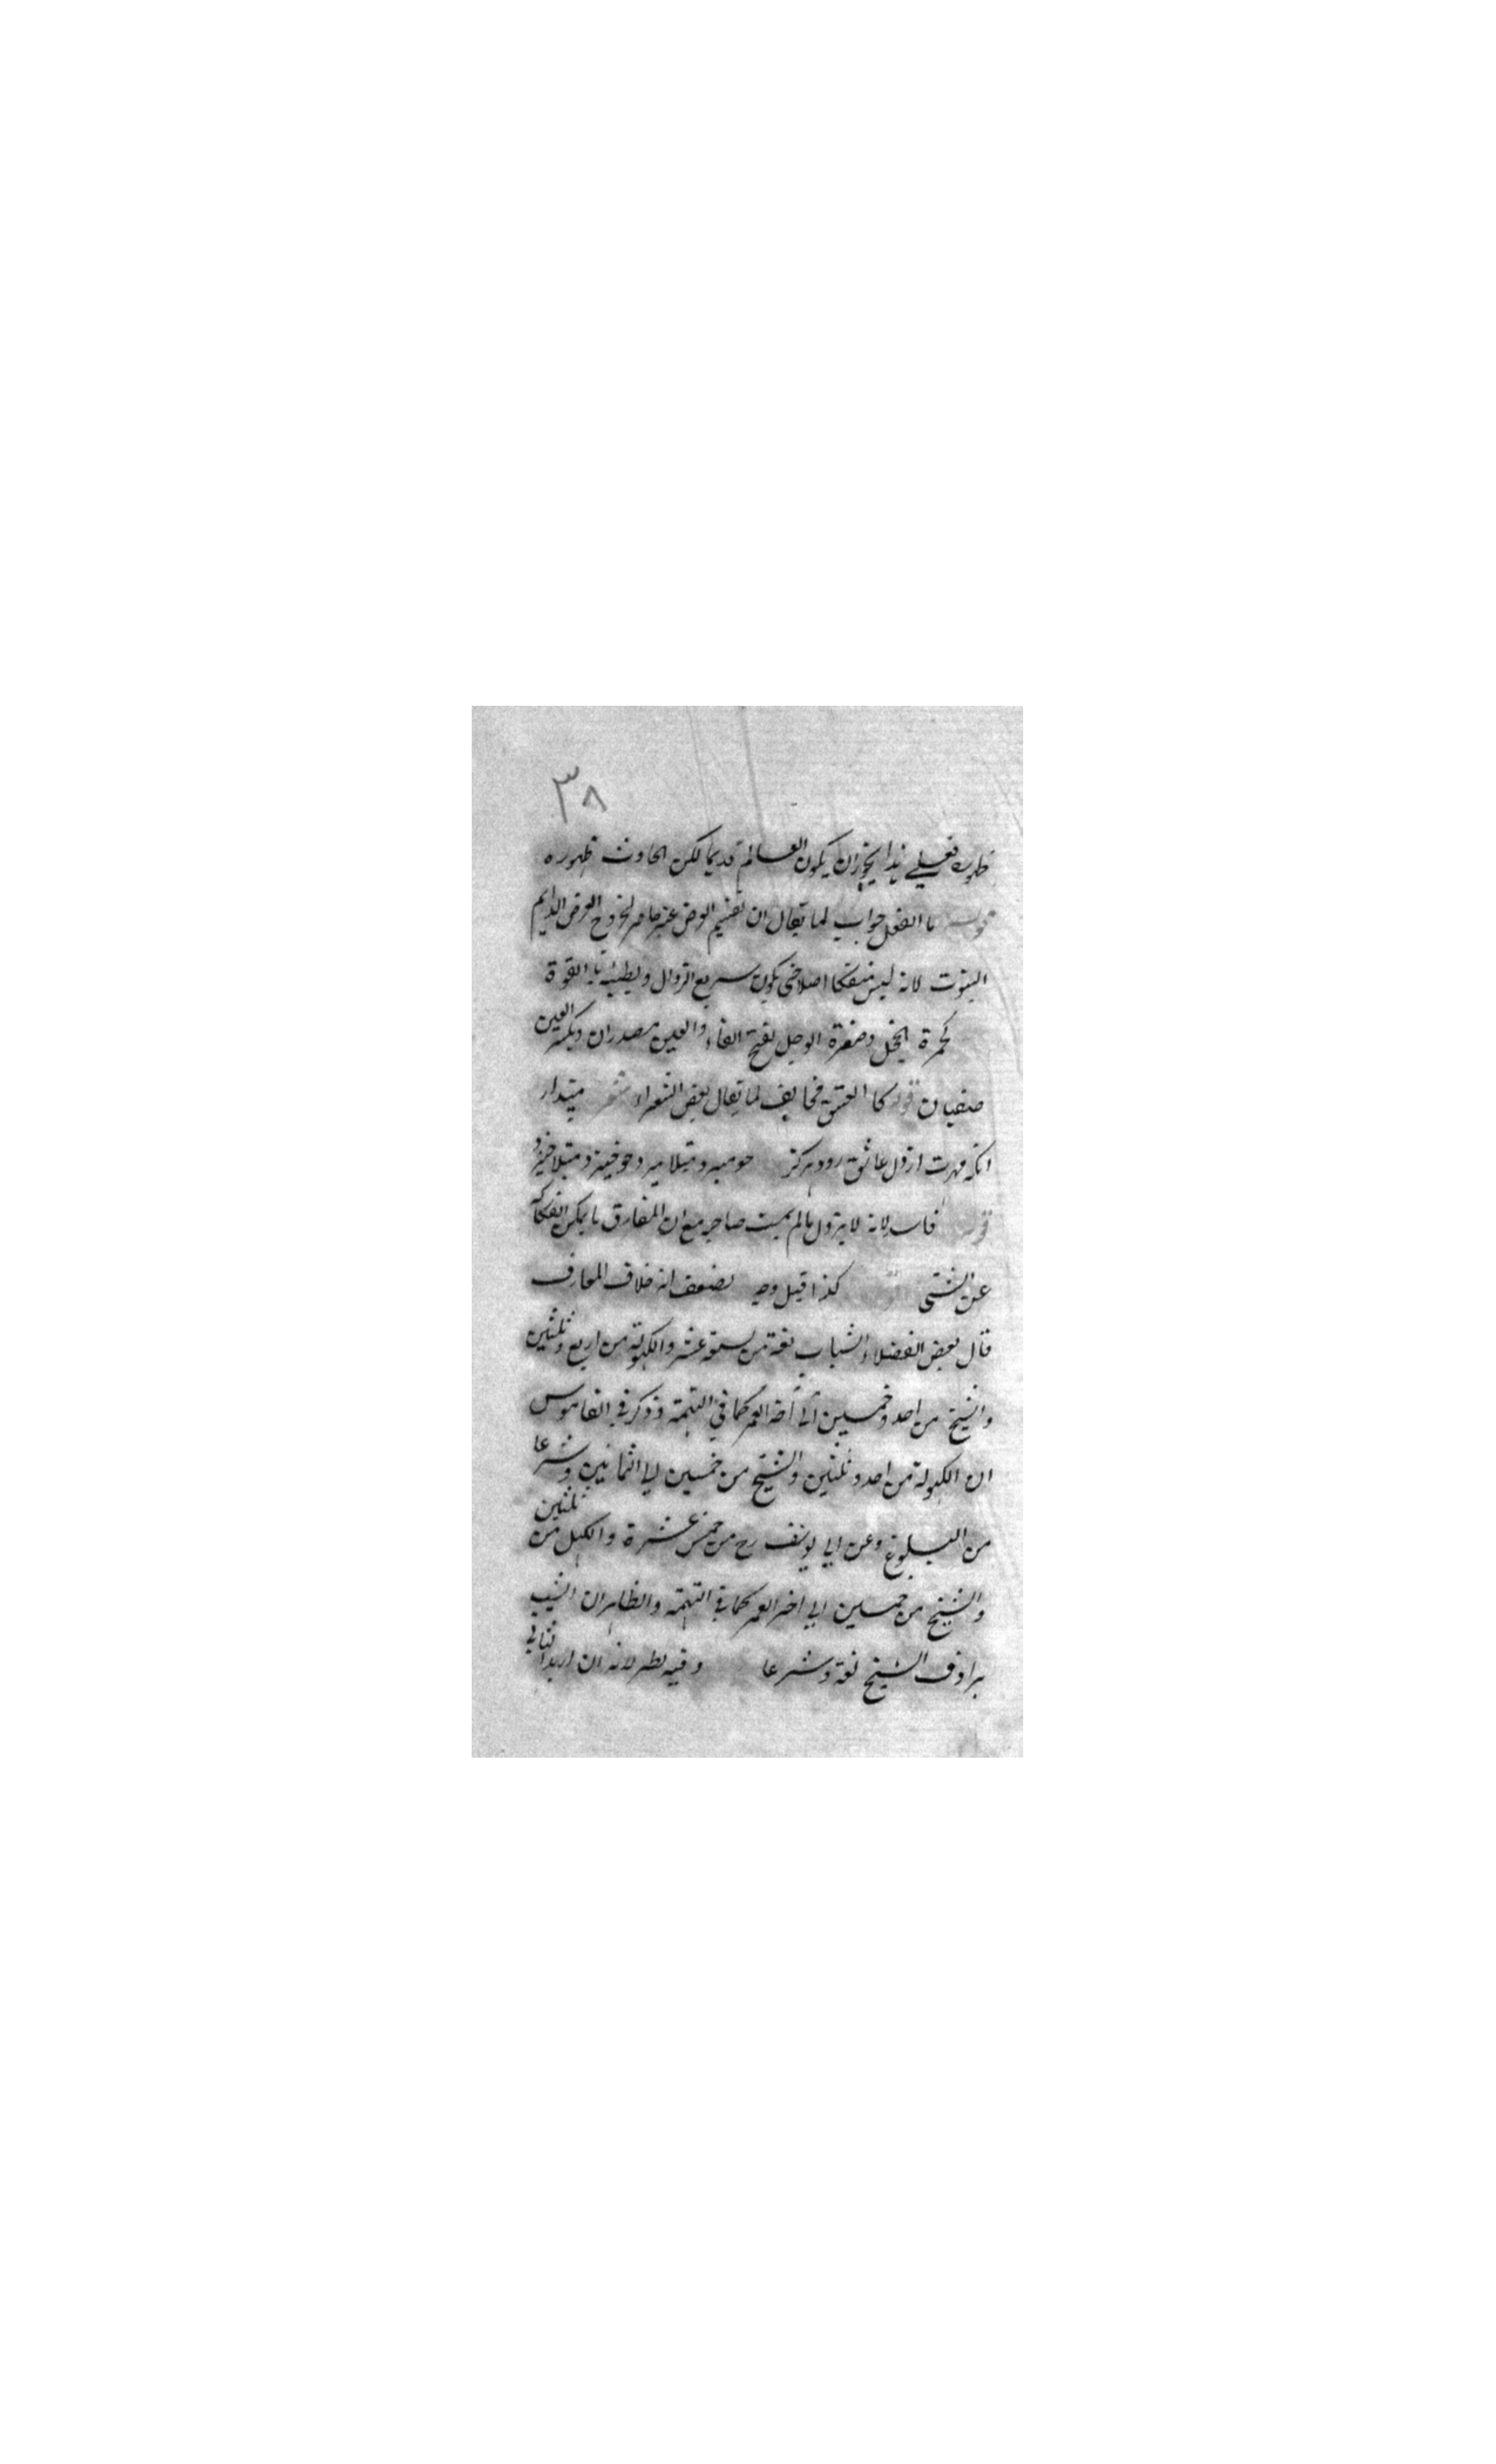 ٣٨
ظهوره فعلي هذا يجوز ان يكون العالم قديما لكن الحادث ظهوره
قوله بالفعل جواب لما يقال ان تقسيم العرض غير حاصر لخروج العرض الدايم
الثبوت لانه ليس منفكا اصلا حتى يكون سريع الزوال وبطيئه بالقوة
كحمرة الخجل وصفرة الوجل بفتح الفاء والعين مصدران وبكسر العين
صفتان قوله كالعشق مخالف لما يقال بعض الشعراء شعر
انكه مهرت از دل عاشق رود هركز چو ميرد مبتلا ميرد چو خيزد مبتلا خيزد
قوله فاسد لانه لا يزول مالم يمت صاحبه مع ان المفارق ما يمكن انفكاكه
عن الشئ كذا قيل وجه لضعف انه خلاف المعارف
قال بعض الفضلاء الشباب لغة من تسعة عشر والكهولة من اربع وثلثين
والشيخ من احد وخمسين الى آخر العمر كما في التتمة وذكر في القاموس
ان الكهولة من احد وثلثين والشيخ من خمسين الى الثمانين وشرعا
من البلوغ وعن ابي يوسف رح من خمس عشرة والكهل من ثلثين
والشيخ من خمسين الى اخر العمر كما في التتمة والظاهر ان الشيب
يرادف الشيخ لغة وشرعا وفيه نظر لانه ان اريد الثاني